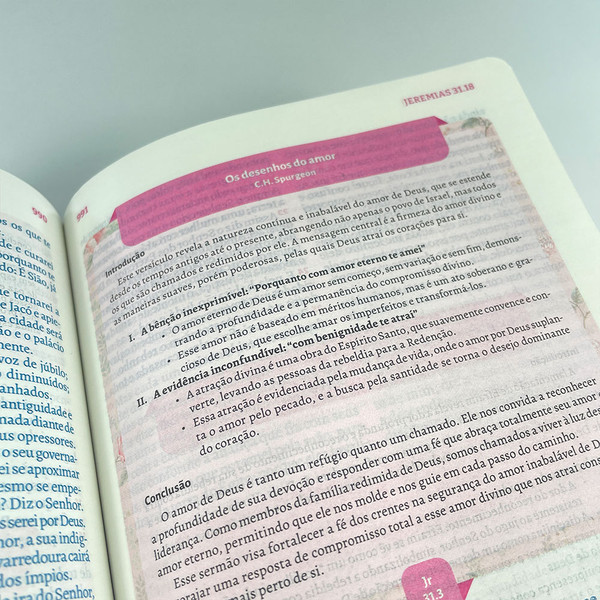 990
os os que te
de e curarei
porquanto te
do: É Sião, já
e tornarei a
de Jacó e apie-
a cidade será
o e o palácio
mente.
voz de júbilo;
diminuídos;
anhados.
antiguidade e
nada diante de
us opressores.
o seu governa-
ei se aproximar
esmo se empe-
? Diz o Senhor.
serei por Deus.
or, a sua indig-
varredoura cairá
dos ímpios.
ira do Senhor,
991
JEREMIAS 31.18
Os desenhos do amor
C.H. Spurgeon
Introdução
Este versículo revela a natureza contínua e inabalável do amor de Deus, que se estende
desde os tempos antigos até o presente, abrangendo não apenas o povo de Israel, mas todos
os que são chamados e redimidos por ele. A mensagem central é a firmeza do amor divino e
as maneiras suaves, porém poderosas, pelas quais Deus atrai os corações para si.
I. A bênção inexprimível: “Porquanto com amor eterno te amei”
• O amor eterno de Deus é um amor sem começo, sem variação e sem fim, demons-
trando a profundidade e a permanência do compromisso divino.
• Esse amor não é baseado em méritos humanos, mas é um ato soberano e gra-
cioso de Deus, que escolhe amar os imperfeitos e transformá-los.
II. A evidência inconfundível: “com benignidade te atraí”
• A atração divina é uma obra do Espírito Santo, que suavemente convence e con-
verte, levando as pessoas da rebeldia para a Redenção.
• Essa atração é evidenciada pela mudança de vida, onde o amor por Deus suplan-
ta o amor pelo pecado, e a busca pela santidade se torna o desejo dominante
do coração.
Conclusão
O amor de Deus é tanto um refúgio quanto um chamado. Ele nos convida a reconhecer
a profundidade de sua devoção e responder com uma fé que abraça totalmente seu amor e
liderança. Como membros da família redimida de Deus, somos chamados a viver à luz des
amor eterno, permitindo que ele nos molde e nos guie em cada passo do caminho.
Esse sermão visa fortalecer a fé dos crentes na segurança do amor inabalável de D
orajar uma resposta de compromisso total a esse amor divino que nos atrai cons
mais perto de si.
Jr
31.3